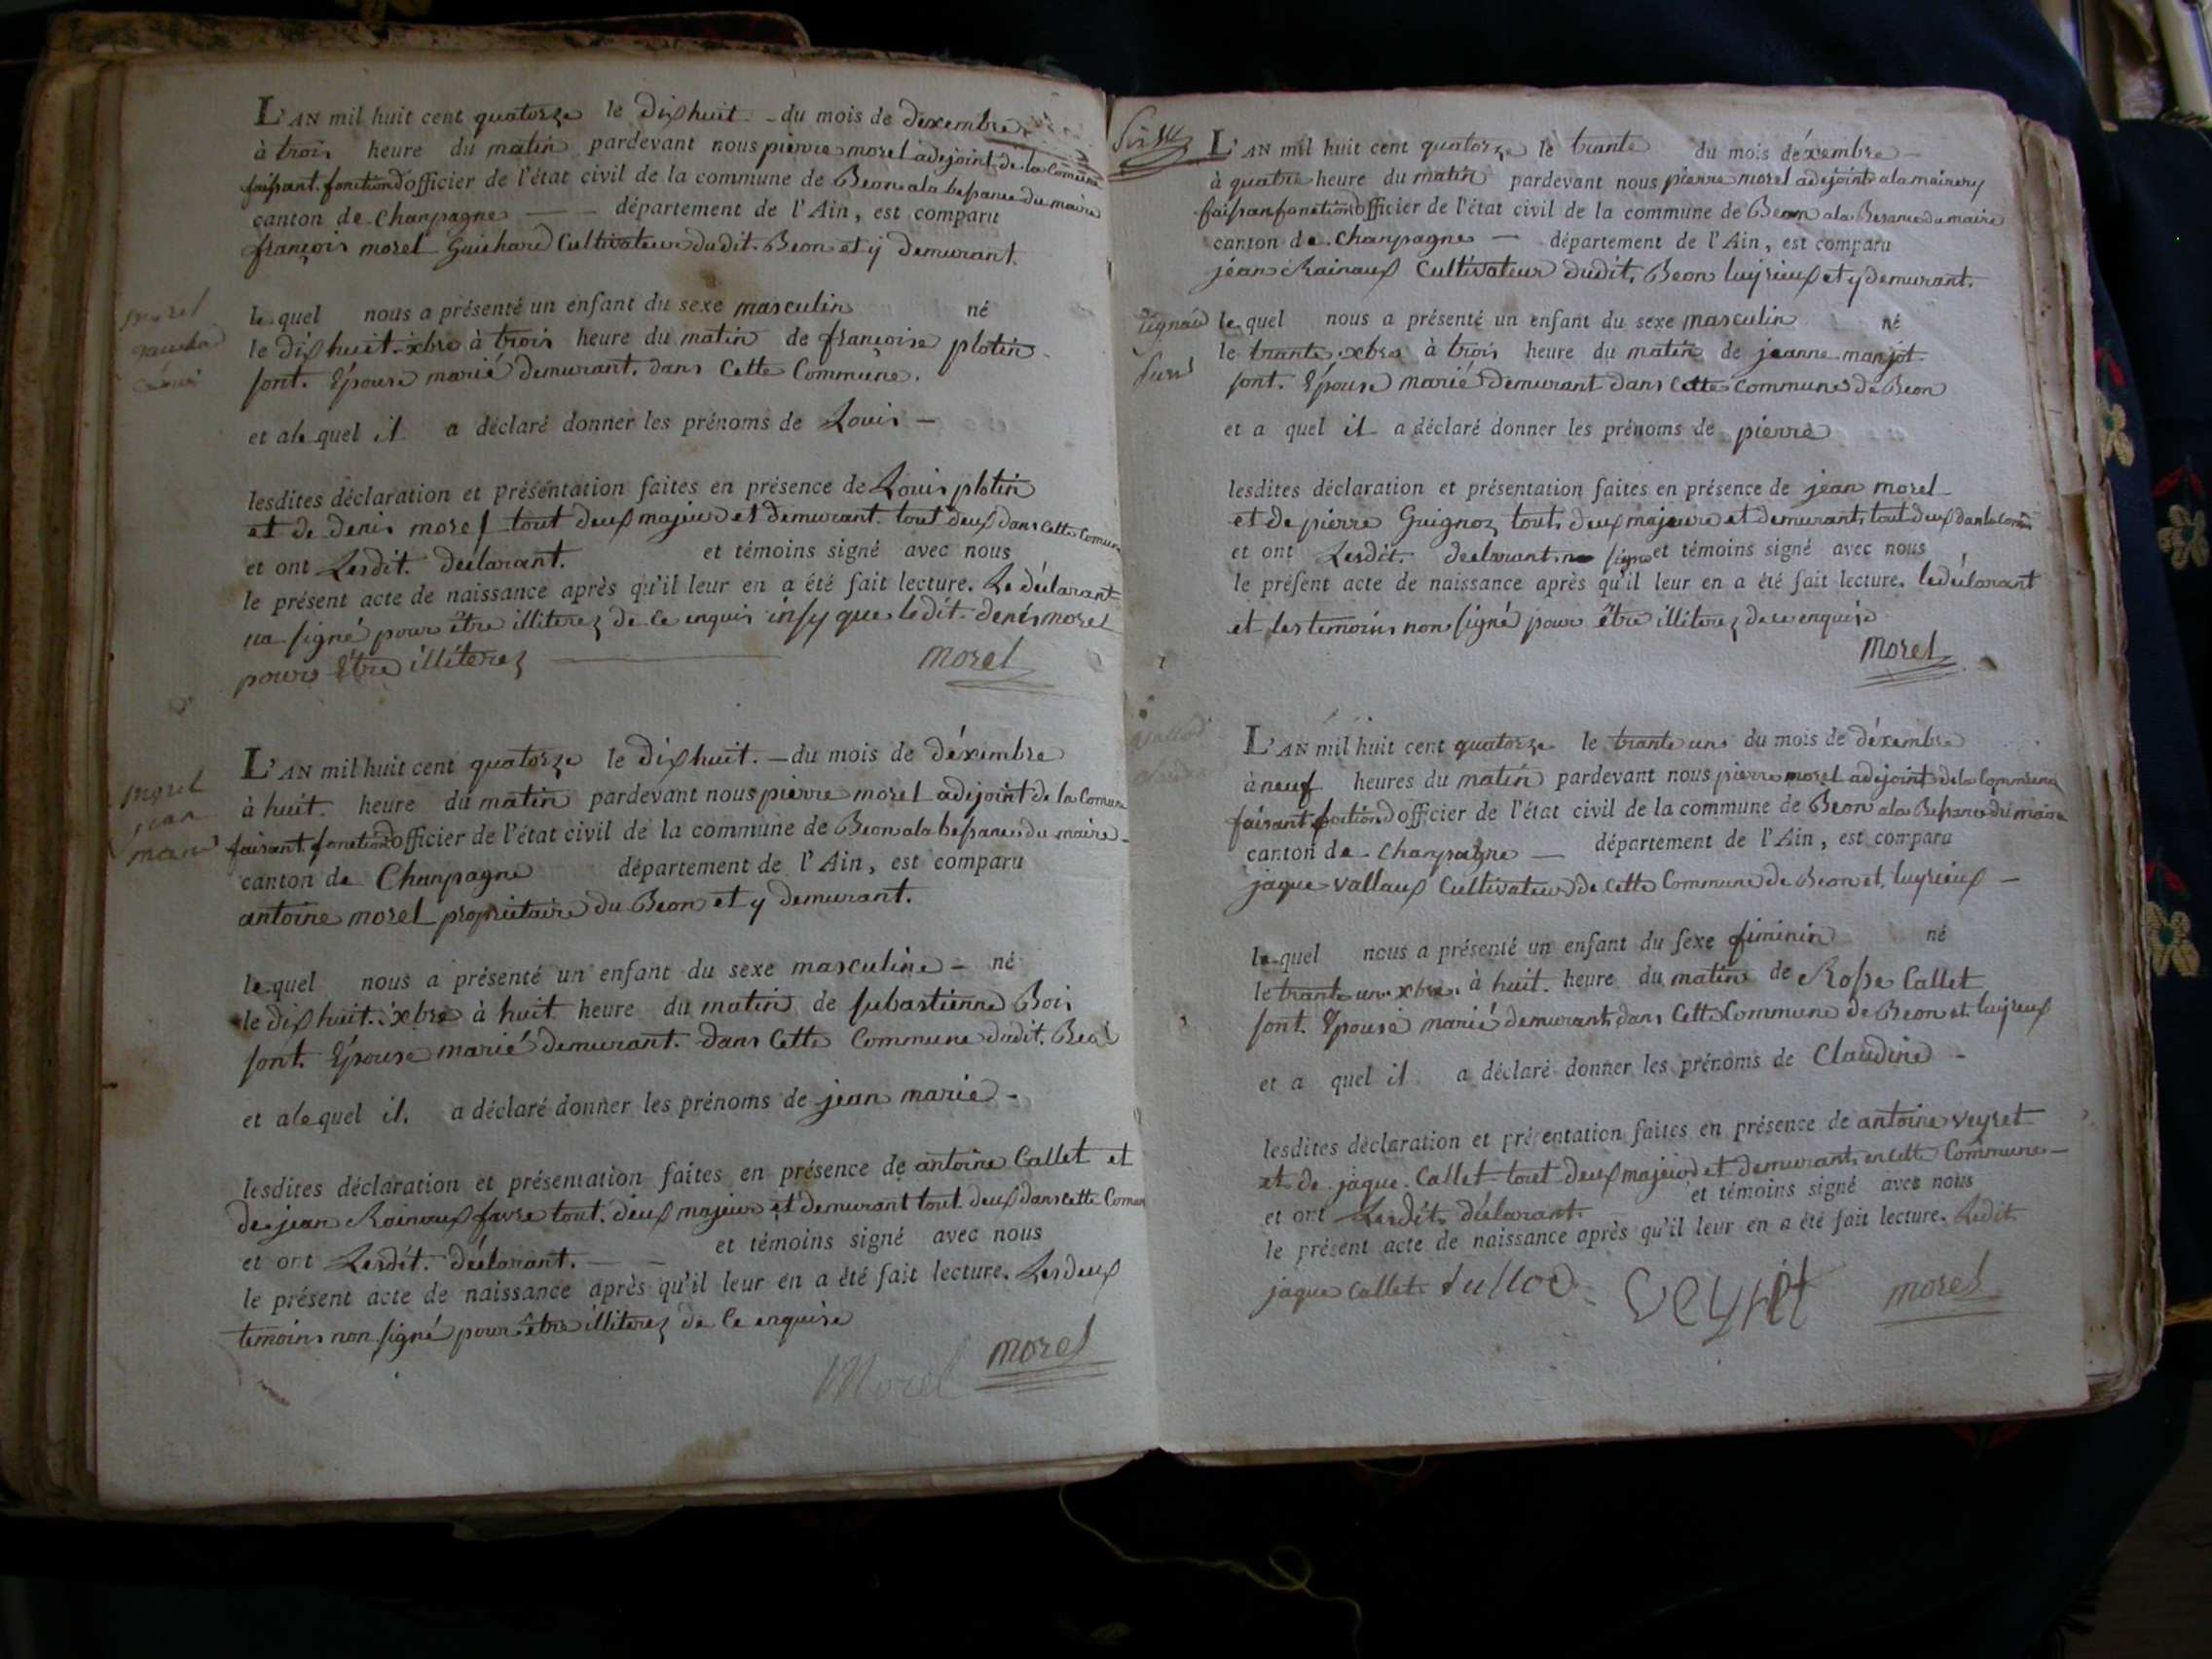 L'AN mil huit cent quatorze le dixhuit - du mois de dexembre
à trois heure du matin pardevant nous pierre morel adejoint de la Comune
faisant fonction d'officier de l'état civil de la commune de Beon ala bessance du maire
canton de Champagne — département de l'Ain, est comparu
françois morel Guichard Cultivateur dudit Beon et y demurant.
morel
le quel nous a présenté un enfant du sexe masculin né
le dixhuit xbre à trois heure du matin de françoise plotin
sont Épouse marié demurant. dans Cette Commune.
et ale quel il a déclaré donner les prénoms de Louis —
lesdites déclaration et présentation faites en présence de Louis plotin
et de denis morel tout deux majeur et demurant tout deux dans Cette Comune
et ont Lesdit. déclarant. et témoins signé avec nous
le présent acte de naissance après qu'il leur en a été fait lecture. Le déclarant
na signé pour être illiterez de Ce enquis insy que ledit denis morel
pour être illiterez
morel
L'AN mil huit cent quatorze le dixhuit. — du mois de déxembre
morel
jean
marie
à huit heure du matin pardevant nous pierre morel adejoint de la Comune
faisant fonction d'officier de l'état civil de la commune de Beon ala bessance du maire
canton de Champagne département de l'Ain, est comparu
antoine morel propriétaire du Beon et y demurant.
le quel nous a présenté un enfant du sexe masculine - né
le dixhuit xbre à huit heure du matin de subastienne Bois
sont Épouse marié demurant. dans Cette Commune dudit. Beon
et ale quel il. a déclaré donner les prénoms de jean marie -
lesdites déclaration et présentation faites en présence de antoine Callet et
de jean Rainaux favre tout. deux majeur et demurant tout deux dans Cette Comune
et ont Lesdit. déclarant. — et témoins signé avec nous
le présent acte de naissance après qu'il leur en a été fait lecture. Les deux
temoins non signé pour être illiterez de Ce enquise
Morel morel
L'AN mil huit cent quatorze le trante du mois déxembre —
à quatre heure du matin pardevant nous pierre morel adejoint ala mairery
faisant fonction d'officier de l'état civil de la commune de Beon ala Besance du maire
canton de Champagne — département de l'Ain, est comparu
jean Rainaux Cultivateur dudit, Beon luyrieux et y demurant.
le quel nous a présenté un enfant du sexe masculin né
le trante xbre à trois heure du matin de jeanne manjot
sont. Épouse marié demurant dans Cette Commune de Beon
et a quel il a déclaré donner les prénoms de pierre
lesdites déclaration et présentation faites en présence de jean morel
et de pierre Guignoz tout deux majeure et demurant tout deux dans la Comune
et ont Lesdit. declarant signe et témoins signé avec nous
le présent acte de naissance après qu'il leur en a été fait lecture. le déclarant
et les temoins non signé pour être illiterez de ce enquise
morel
L'AN mil huit cent quatorze le trante uns du mois de déxembre
à neuf heures du matin pardevant nous pierre morel adejoint de la Commune
faisant fontion d'officier de l'état civil de la commune de Beon ala Bessance du maire
canton de Champagne — département de l'Ain, est comparu
jaque vallaux Cultivateur de Cette Commune de Beon et, luyrieux —
le quel nous a présenté un enfant du sexe fiminin né
le trante un xbre à huit. heure du matin de Rosse Callet
sont. Épouse marié demurant dans Cette Commune de Beon et luyrieux
et a quel il a déclaré donner les prénoms de Claudine -
lesdites déclaration et présentation faites en présence de antoine veyret
et de jaque Callet tout deux majeur et demurant en cette Commune —
et ont Lesdit déclarant. et témoins signé avec nous
le présent acte de naissance après qu'il leur en a été fait lecture. Ledit
jaque Callet veyret morel